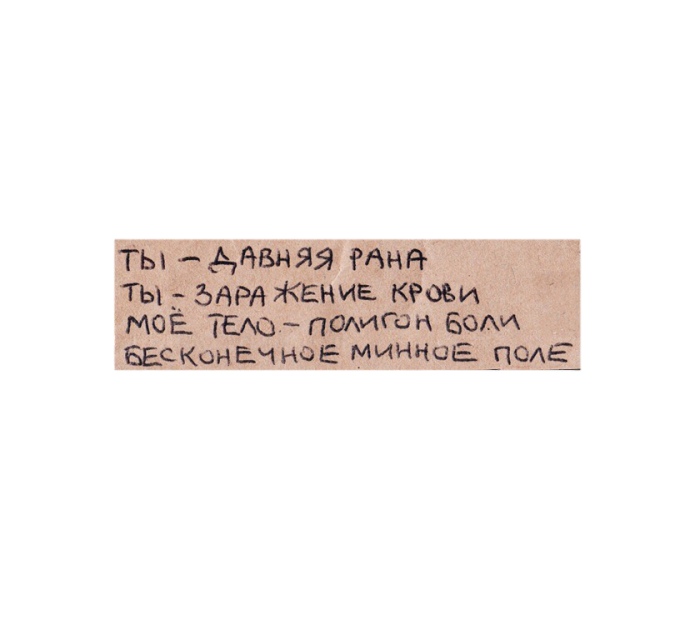 ТЫ – ДАВНЯЯ РАНА
ТЫ – ЗАРАЖЕНИЕ КРОВИ
МОЁ ТЕЛО – ПОЛИГОН БОЛИ
БЕСКОНЕЧНОЕ МИННОЕ ПОЛЕ